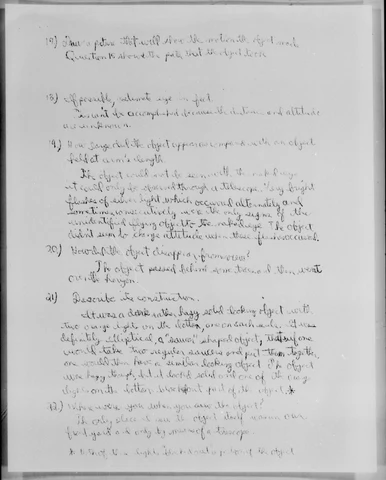 17) Draw a picture that will show the motion the object made
Question 14 shows the path that the object took
18) If possible, estimate size in feet.
This can't be accomplished because the distance and altitude
are unknown.
19) How large did the object appear as compared with an object
held at arm's length.
The object could not be seen with the naked eye,
it could only be observed through a telescope. Very bright
flashes of light which occurred alternately and
sometimes consecutively were the only signs of the
unidentified flying object to the naked eye. The object
didn't seem to change altitude when these flashes occurred.
20) How did the object disappear from view?
The object passed behind some trees and then went
over the horizon.
21) Describe the construction.
It was a dark, hazy solid looking object with
two orange lights on the bottom, one on each side. It was
definitely elliptical, a "saucer" shaped object, that if one
would take two regular saucers and put them together
one would then have a similar looking object. The object
was hazy though, but it looked solid and one of the orange
lights on the bottom part of the object
22) Where were you when you saw the object?
The only place to see the object was in our
front yard and only by means of a telescope.
of the object